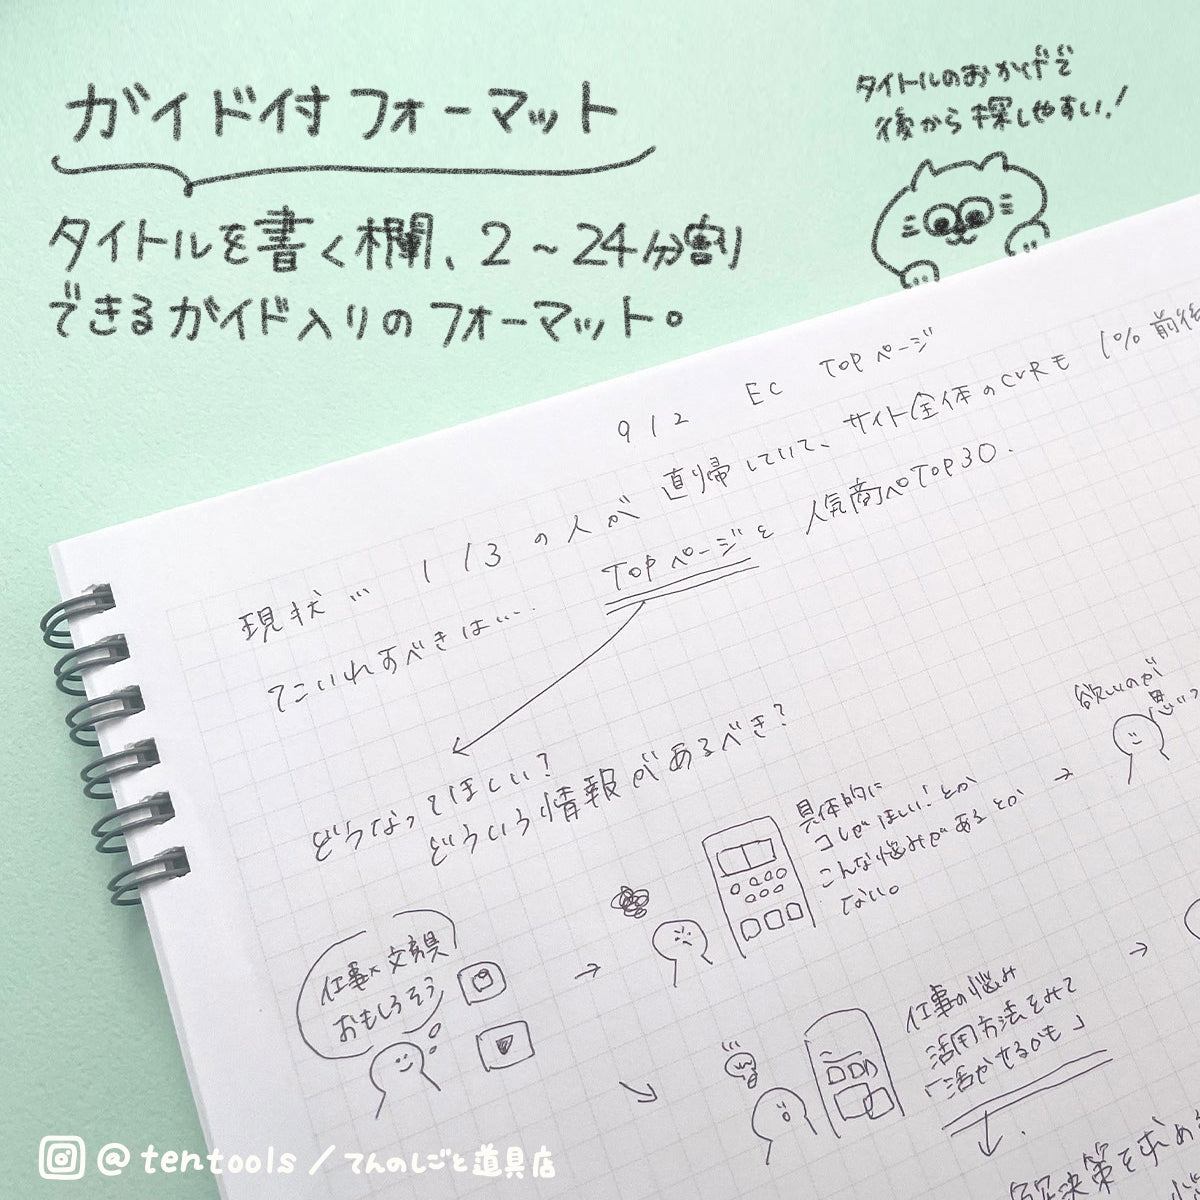 ガイド付フォーマット
タイトルを書く欄、2～24分割
できるガイド入りのフォーマット。
タイトルのおかげで
後から探しやすい！
912 EC TOPページ
現状… 1/3の人が直帰していて、サイト全体のCVRも1%前後
てこいれすべきは… TOPページと人気商ペTOP30.
どうなってほしい?
どういう情報があるべき?
欲しいのが
思いつ
具体的に
コレがほしい!とか
こんな悩みがあるとか
てない。
仕事×文房具
おもしろそう
仕事の悩み
活用方法をみて
「活かせるかも」
解決策を求め
@tentools/てんのしごと道具店